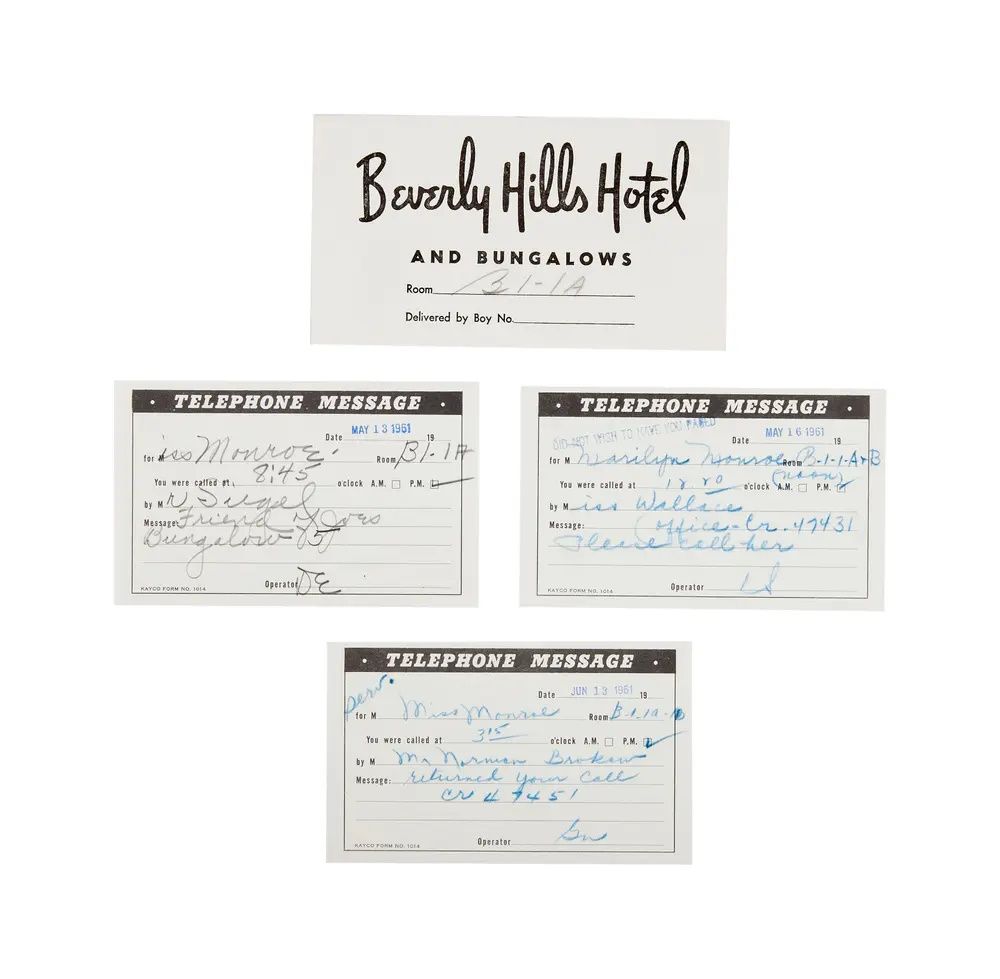 Beverly Hills Hotel
AND BUNGALOWS
Room B1-1A
Delivered by Boy No.
· TELEPHONE MESSAGE ·
Date MAY 13 1961 19
for Miss Monroe Room B1-1A
You were called at 8:45 o'clock A.M. P.M.
by Mr Siegel
Message: Friend of Joes
Bungalow
Operator DE
KAYCO FORM NO. 1014
· TELEPHONE MESSAGE ·
DID NOT WISH TO HAVE YOU PAGED
Date MAY 16 1961 19
for M Marilyn Monroe Room B-1-1-A+B
(noon)
You were called at 12 00 o'clock A.M. P.M.
by Miss Wallace
Message: Office-Cr. 47431
Please call her
Operator
KAYCO FORM NO. 1014
· TELEPHONE MESSAGE ·
Date JUN 13 1961 19
for M Miss Monroe Room B-1-1A-1B
You were called at 3 15 o'clock A.M. P.M.
by M Mr Norman Brokaw
Message: returned your call
CR 47451
Operator
KAYCO FORM NO. 1014